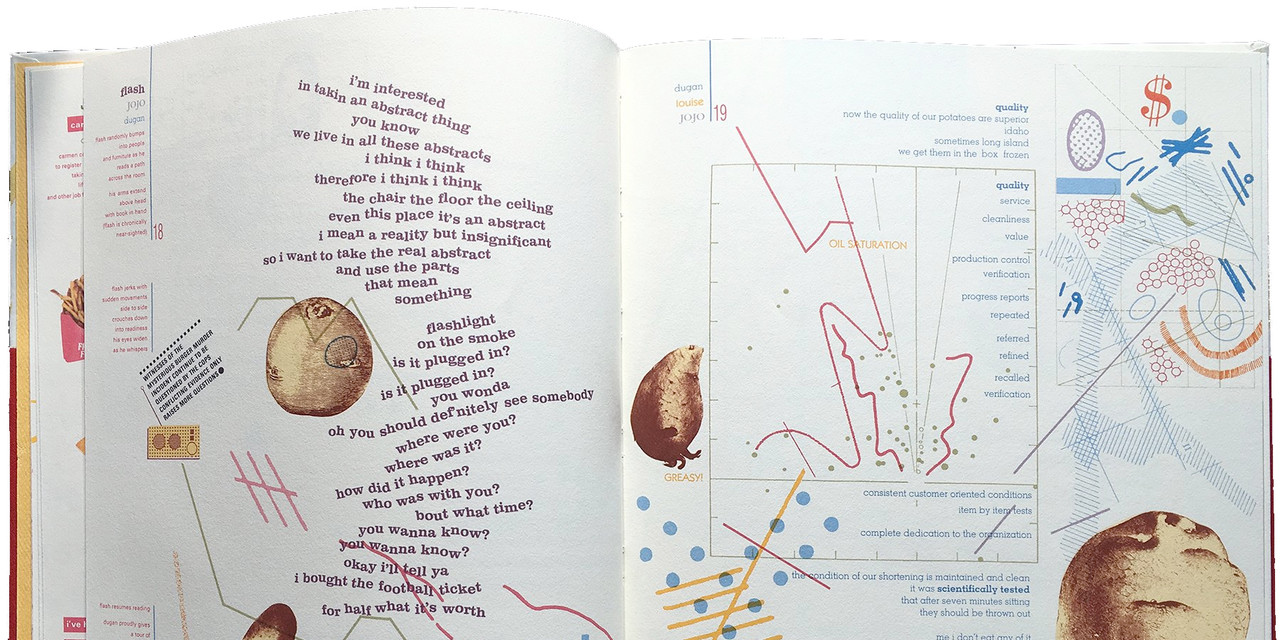 flash
jojo
dugan
flash randomly bumps
into people
and furniture as he
reads a path
across the room
his arms extend
above head
with book in hand
(flash is chronically
near-sighted)
18
flash jerks with
sudden movements
side to side
crouches down
into readiness
his eyes widen
as he whispers
WITNESSES OF THE
MYSTERIOUS BURGER MURDER
INCIDENT CONTINUE TO BE
QUESTIONED BY THE COPS
CONFLICTING EVIDENCE ONLY
RAISES MORE QUESTIONS
flash resumes reading
dugan proudly gives
a tour of
i'm interested
in takin an abstract thing
you know
we live in all these abstracts
i think i think
therefore i think i think
the chair the floor the ceiling
even this place it's an abstract
i mean a reality but insignificant
so i want to take the real abstract
and use the parts
that mean
something
flashlight
on the smoke
is it plugged in?
is it plugged in?
you wonda
oh you should def'nitely see somebody
where were you?
where was it?
how did it happen?
who was with you?
bout what time?
you wanna know?
you wanna know?
okay i'll tell ya
i bought the football ticket
for half what it's worth
dugan
louise
jojo
19
quality
now the quality of our potatoes are superior
idaho
sometimes long island
we get them in the box frozen
OIL SATURATION
quality
service
cleanliness
value
production control
verification
progress reports
repeated
referred
refined
recalled
verification
GREASY!
consistent customer oriented conditions
item by item tests
complete dedication to the organization
the condition of our shortening is maintained and clean
it was scientifically tested
that after seven minutes sitting
they should be thrown out
me i don't eat any of it
$